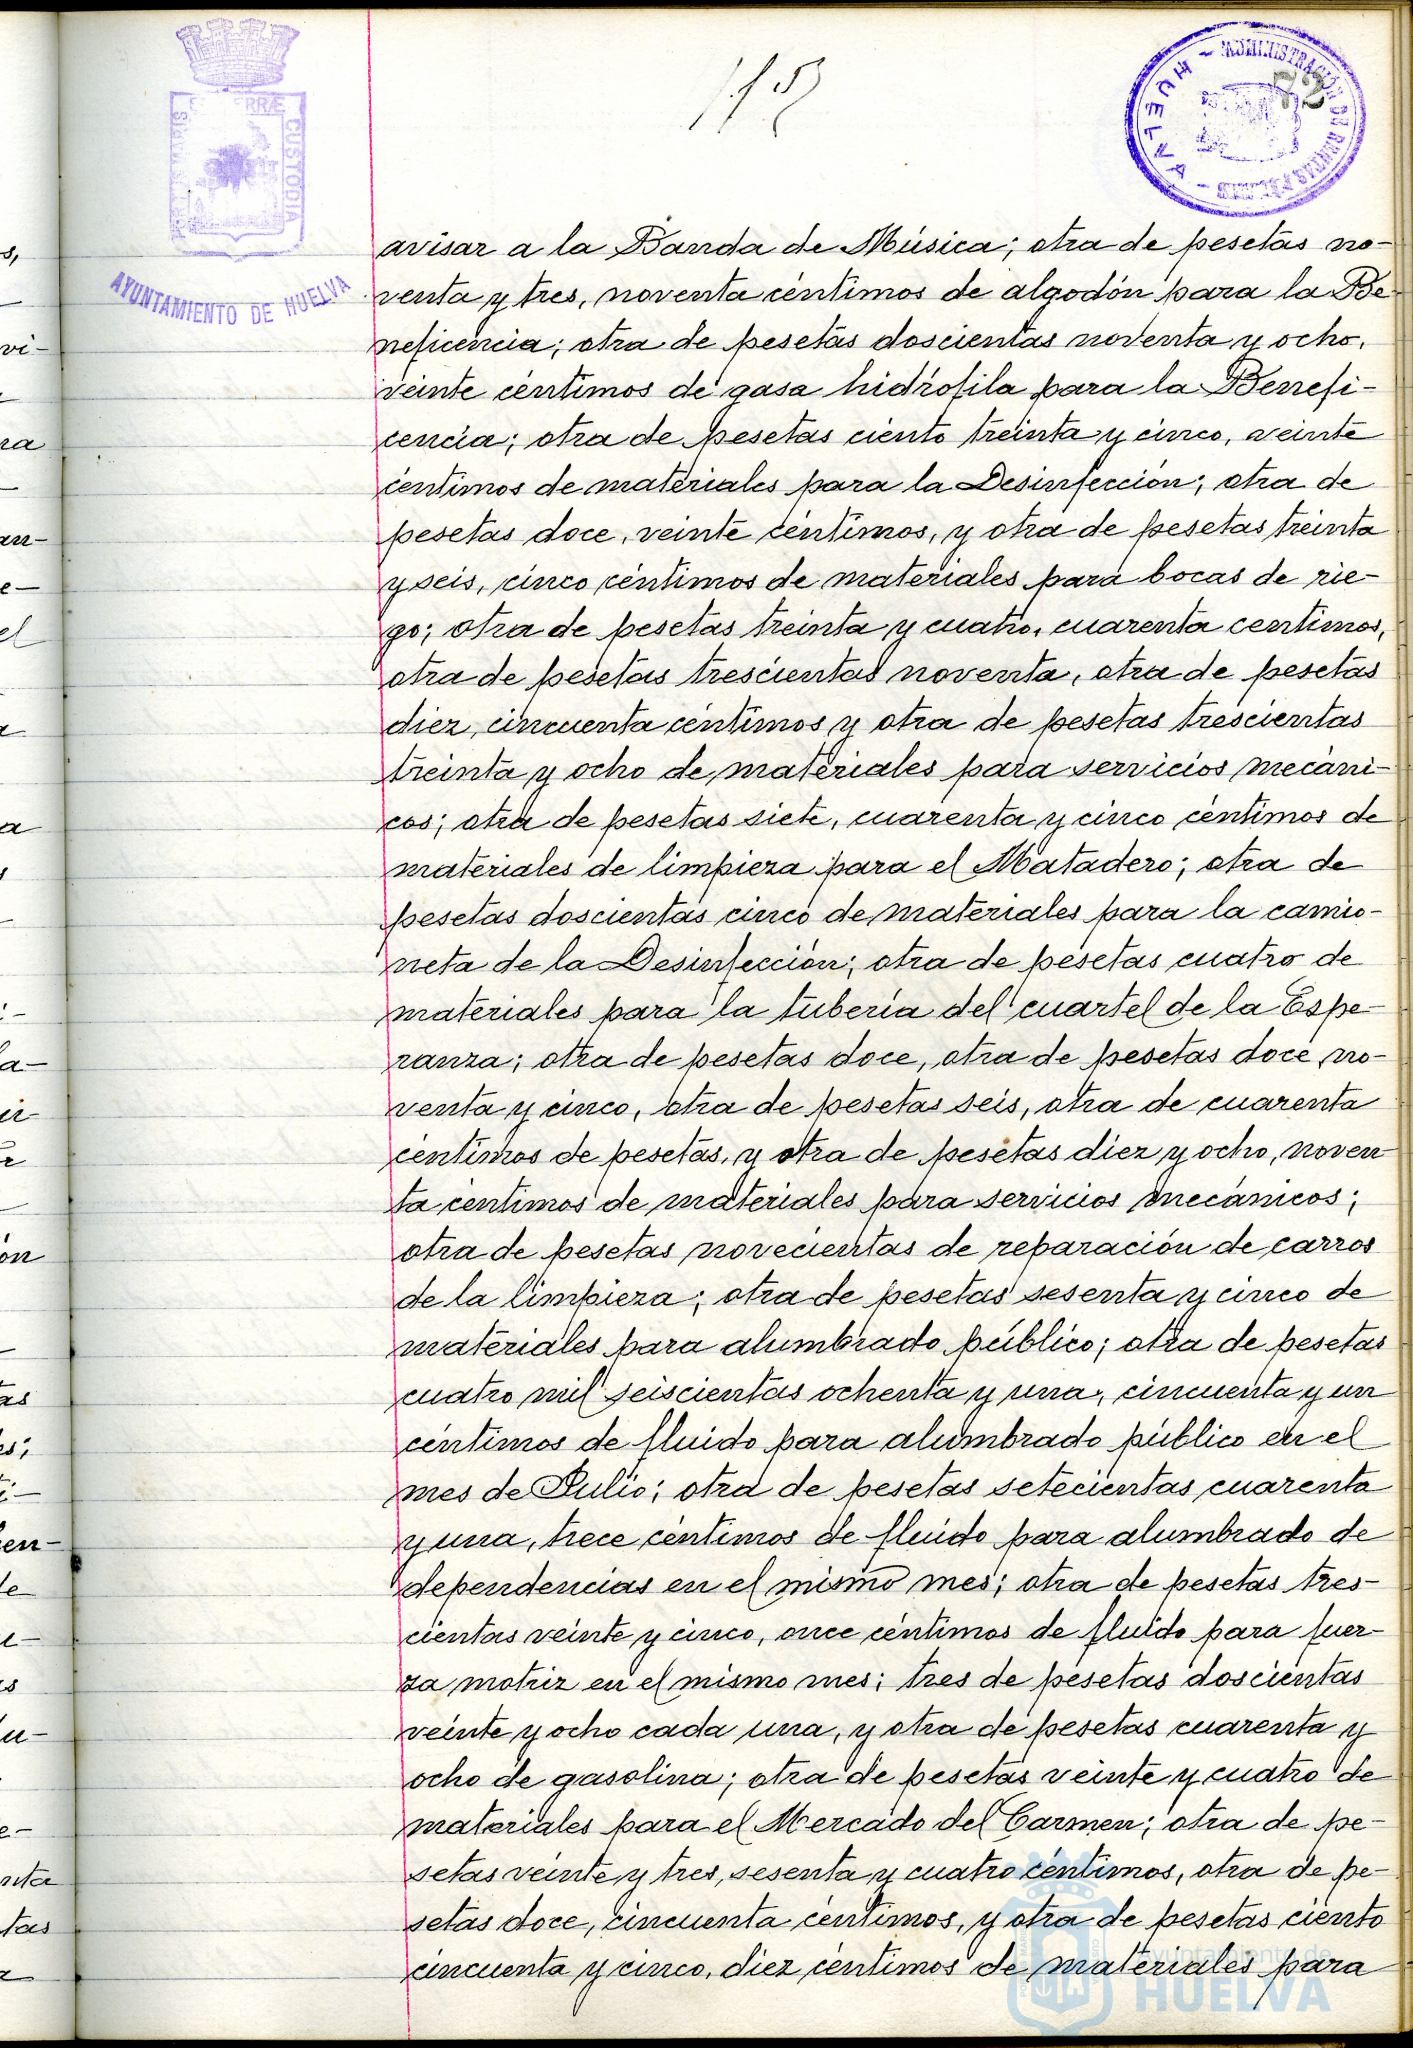 72
HUELVA - ADMINISTRACIÓN DE RENTAS PÚBLICAS -
TERRÆ CUSTODIA
AYUNTAMIENTO DE HUELVA
avisar a la Banda de Música; otra de pesetas no-
venta y tres, noventa céntimos de algodón para la Be-
neficencia; otra de pesetas doscientas noventa y ocho,
veinte céntimos de gasa hidrófila para la Benefi-
cencia; otra de pesetas ciento treinta y cinco, veinte
céntimos de materiales para la Desinfección; otra de
pesetas doce, veinte céntimos, y otra de pesetas treinta
y seis, cinco céntimos de materiales para bocas de rie-
go; otra de pesetas treinta y cuatro, cuarenta centimos,
otra de pesetas trescientas noventa, otra de pesetas
diez, cincuenta céntimos y otra de pesetas trescientas
treinta y ocho de materiales para servicios mecáni-
cos; otra de pesetas siete, cuarenta y cinco céntimos de
materiales de limpieza para el Matadero; otra de
pesetas doscientas cinco de materiales para la camio-
neta de la Desinfección; otra de pesetas cuatro de
materiales para la tubería del cuartel de la Espe-
ranza; otra de pesetas doce, otra de pesetas doce, no-
venta y cinco, otra de pesetas seis, otra de cuarenta
céntimos de pesetas, y otra de pesetas diez y ocho, noven
ta céntimos de materiales para servicios mecánicos;
otra de pesetas novecientas de reparación de carros
de la limpieza; otra de pesetas sesenta y cinco de
materiales para alumbrado público; otra de pesetas
cuatro mil seiscientas ochenta y una, cincuenta y un
céntimos de fluido para alumbrado público en el
mes de Julio; otra de pesetas setecientas cuarenta
y una, trece céntimos de fluido para alumbrado de
dependencias en el mismo mes; otra de pesetas tres-
cientas veinte y cinco, once céntimos de fluido para fuer-
za motriz en el mismo mes; tres de pesetas doscientas
veinte y ocho cada una, y otra de pesetas cuarenta y
ocho de gasolina; otra de pesetas veinte y cuatro de
materiales para el Mercado del Carmen; otra de pe-
setas veinte y tres, sesenta y cuatro céntimos, otra de pe-
setas doce, cincuenta céntimos, y otra de pesetas ciento
cincuenta y cinco, diez céntimos de materiales para
Ayuntamiento de
HUELVA